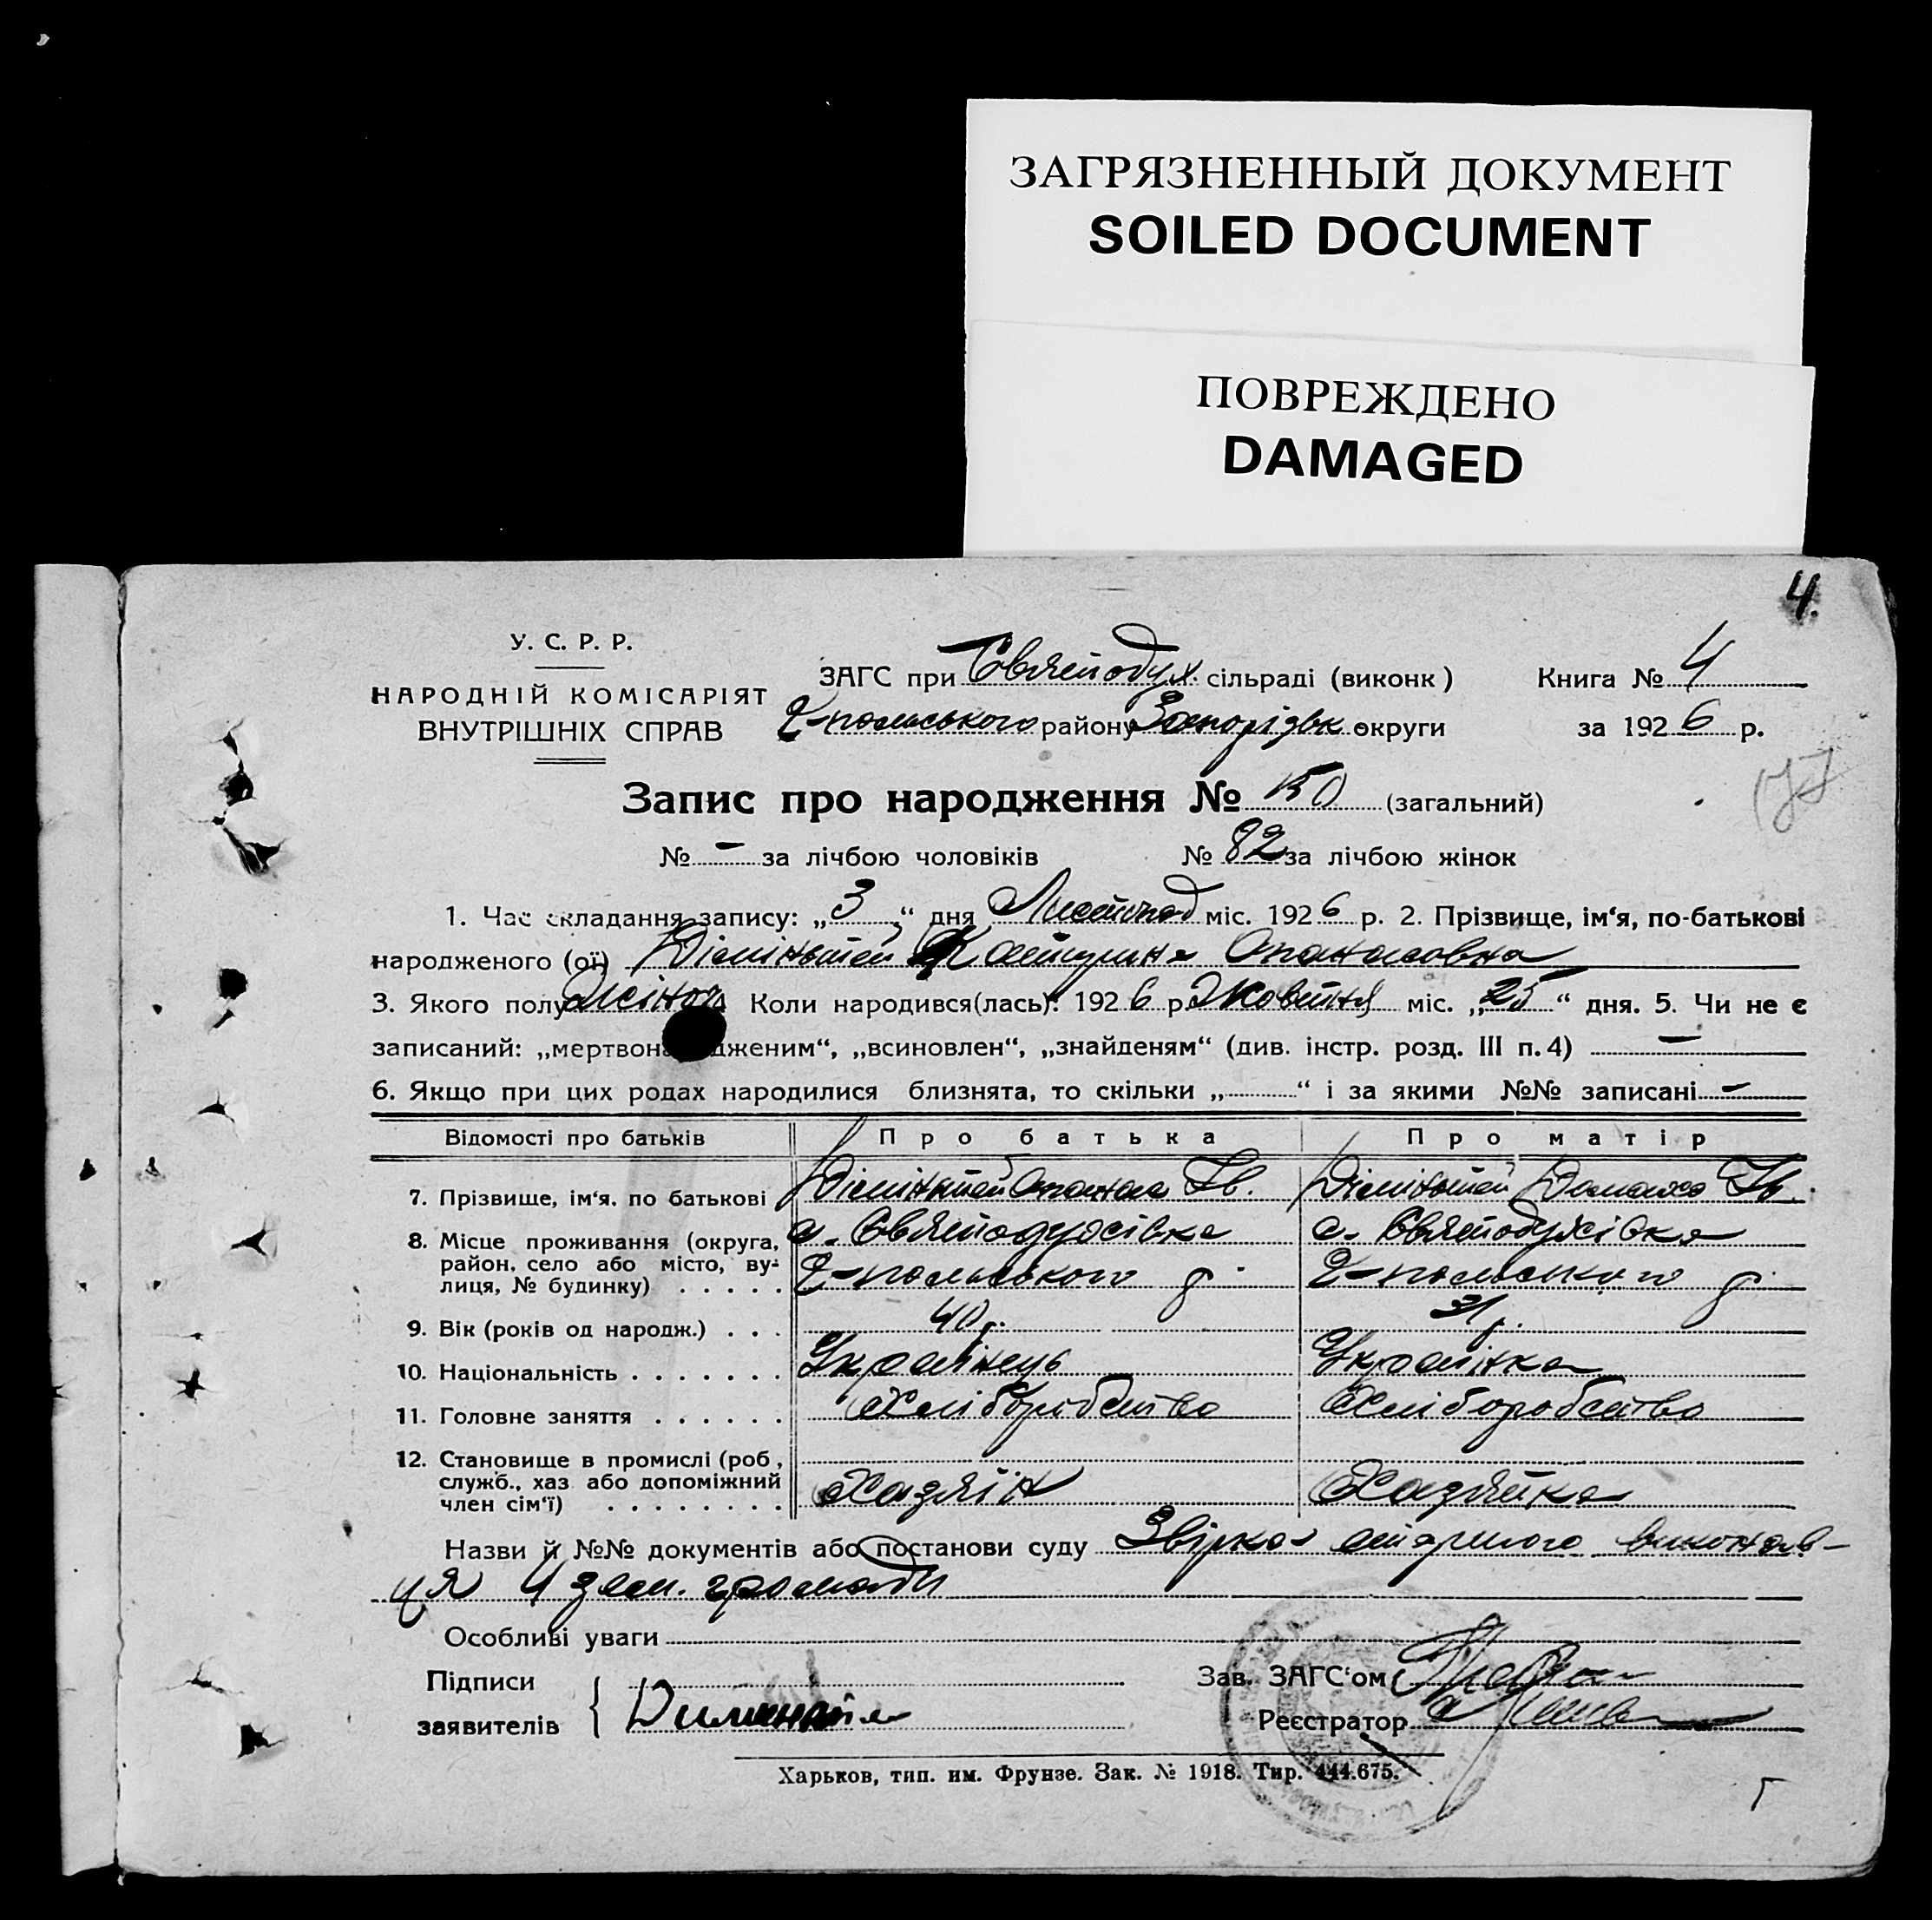 ЗАГРЯЗНЕННЫЙ ДОКУМЕНТ
SOILED DOCUMENT
ПОВРЕЖДЕНО
DAMAGED
4.
У. С. Р. Р.
НАРОДНІЙ КОМІСАРІЯТ
ВНУТРІШНІХ СПРАВ
ЗАГС при Святодух. сільраді (виконк) Книга № 4
району Запорізьк округи за 1926 р.
Запис про народження № 150 (загальний)
№ – за лічбою чоловіків № 82 за лічбою жінок
1. Час складання запису: „3“ дня Листопад міс. 1926 р. 2. Прізвище, ім‘я, по-батькові
народженого (ої) Катерина Опанасовна
3. Якого полу жіноч. 4. Коли народився(лась): 1926 р. Жовтня міс. „25“ дня. 5. Чи не є
записаний: „мертвонародженим“, „всиновлен“, „знайденям“ (див. інстр. розд. III п. 4) –
6. Якщо при цих родах народилися близнята, то скільки „ “ і за якими №№ записані –
Відомості про батьків Про батька Про матір
7. Прізвище, ім‘я, по батькові Опанас Ів. Ів.
8. Місце проживання (округа, с. Святодухівка с. Святодухівка
район, село або місто, ву-
лиця, № будинку) . . . . .
9. Вік (років од народж.) . . . 40 р. 31 р.
10. Національність . . . . . . . Українець Українка
11. Головне заняття . . . . . . Хліборобство Хліборобство
12. Становище в промислі (роб,
служб., хаз або допоміжний Хазяїн Хазяйка
член сім‘ї) . . . . . . . .
Назви й №№ документів або постанови суду Звірка старшого виконав-
ця 4 зем. громади
Особливі уваги
Підписи Зав. ЗАГС‘ом
заявителів Реєстратор
Харьков, тип. им. Фрунзе. Зак. № 1918. Тир. 444.675.